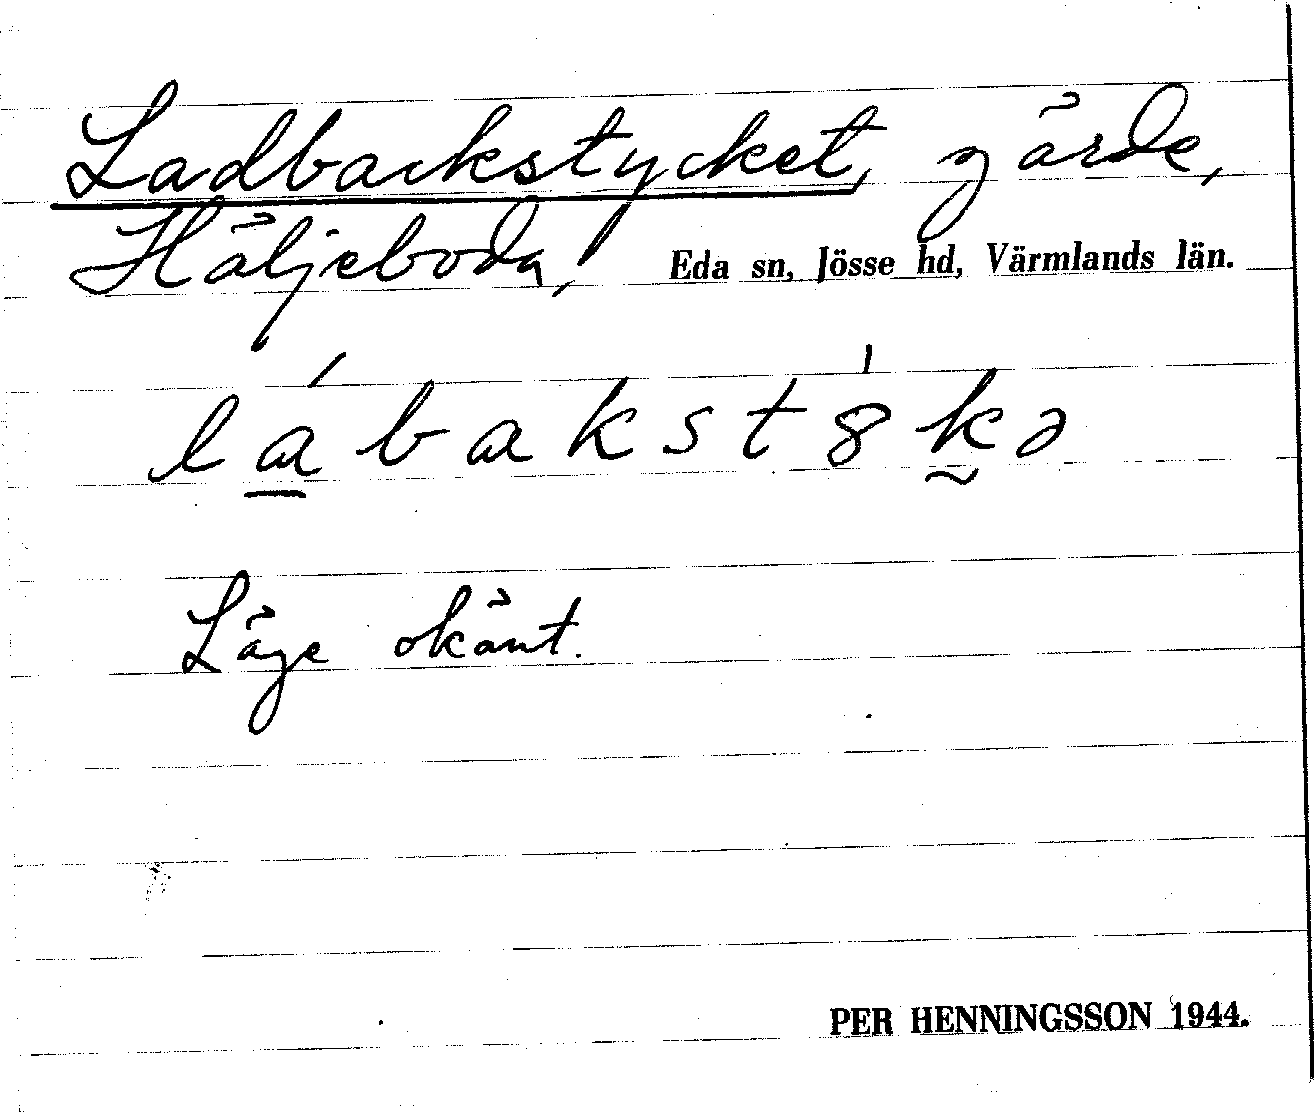 Ladbackstycket, gärde,
Häljeboda, Eda sn, Jösse hd, Värmlands län.
lá̲bakst8̍k̰ə
Läge okänt.
PER HENNINGSSON 1944.